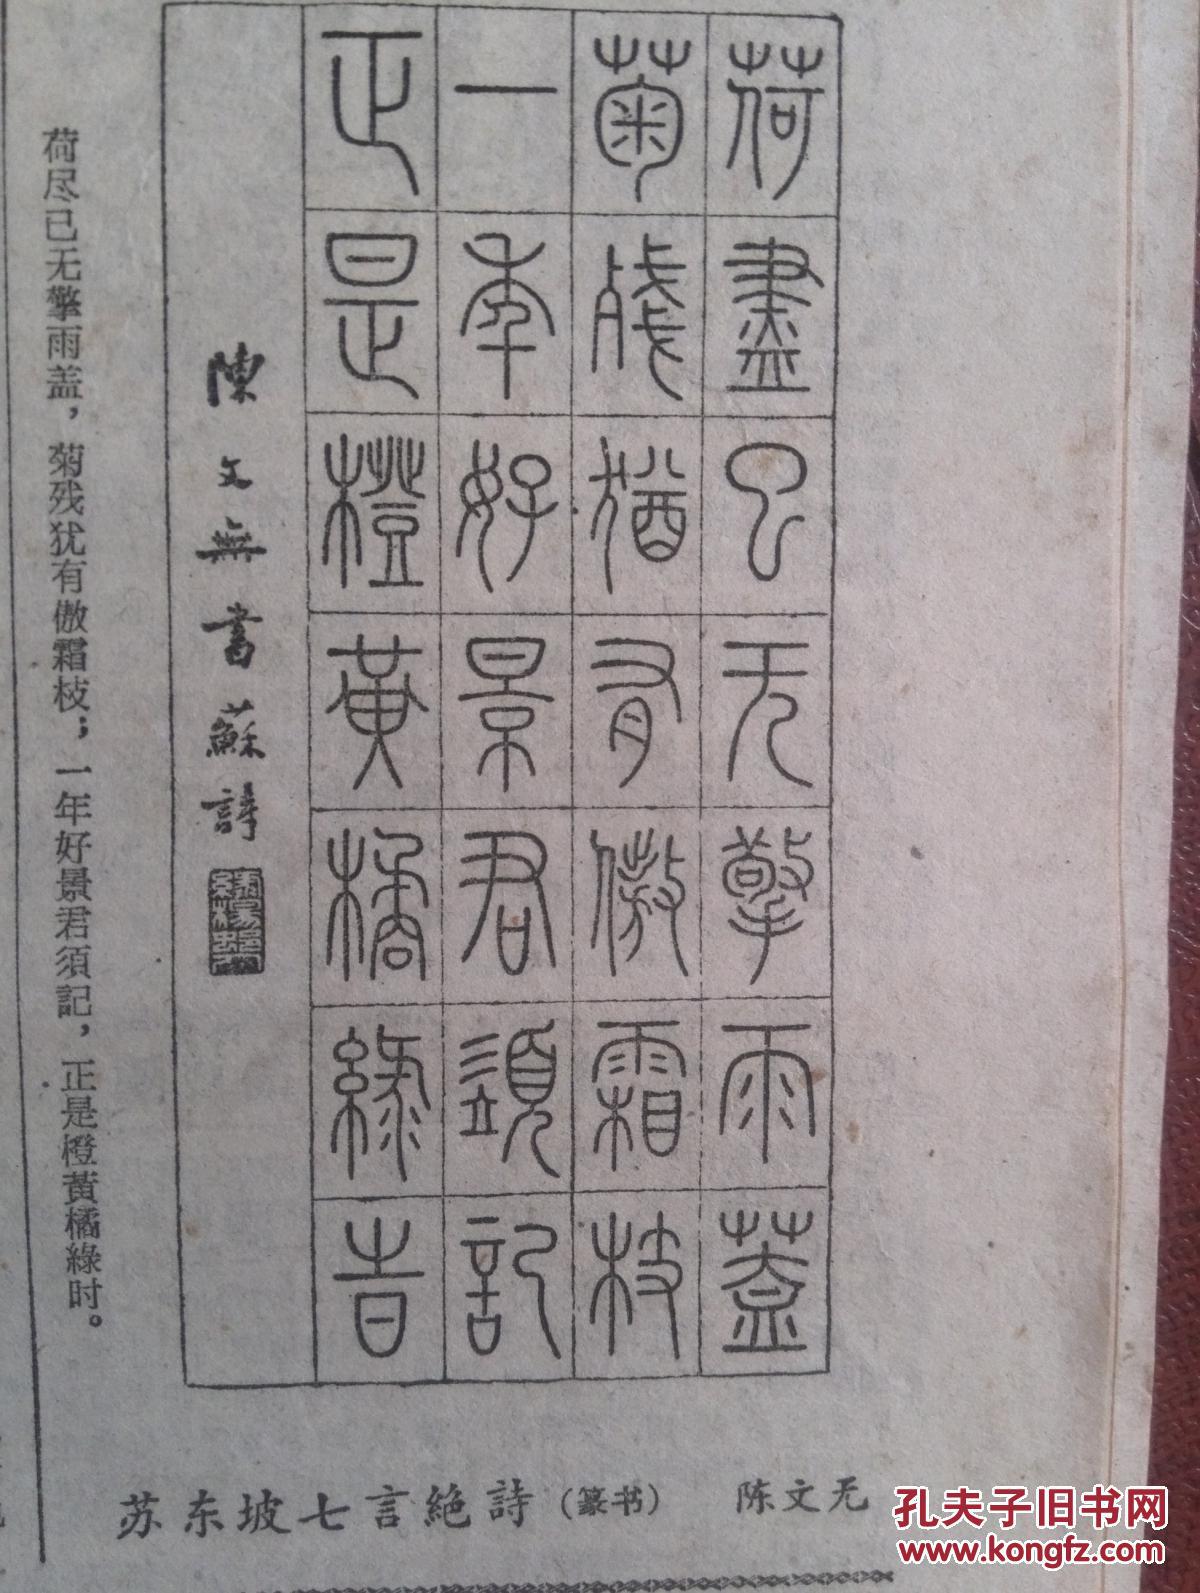 荷盡已无擎雨蓋
菊殘猶有傲霜枝
一年好景君須記
正是橙黃橘綠旹
陳文無書蘇詩
荷尽已无擎雨盖，菊残犹有傲霜枝；一年好景君須記，正是橙黃橘綠时。
苏东坡七言絶詩（篆书） 陈文无
孔夫子旧书网
www.kongfz.com